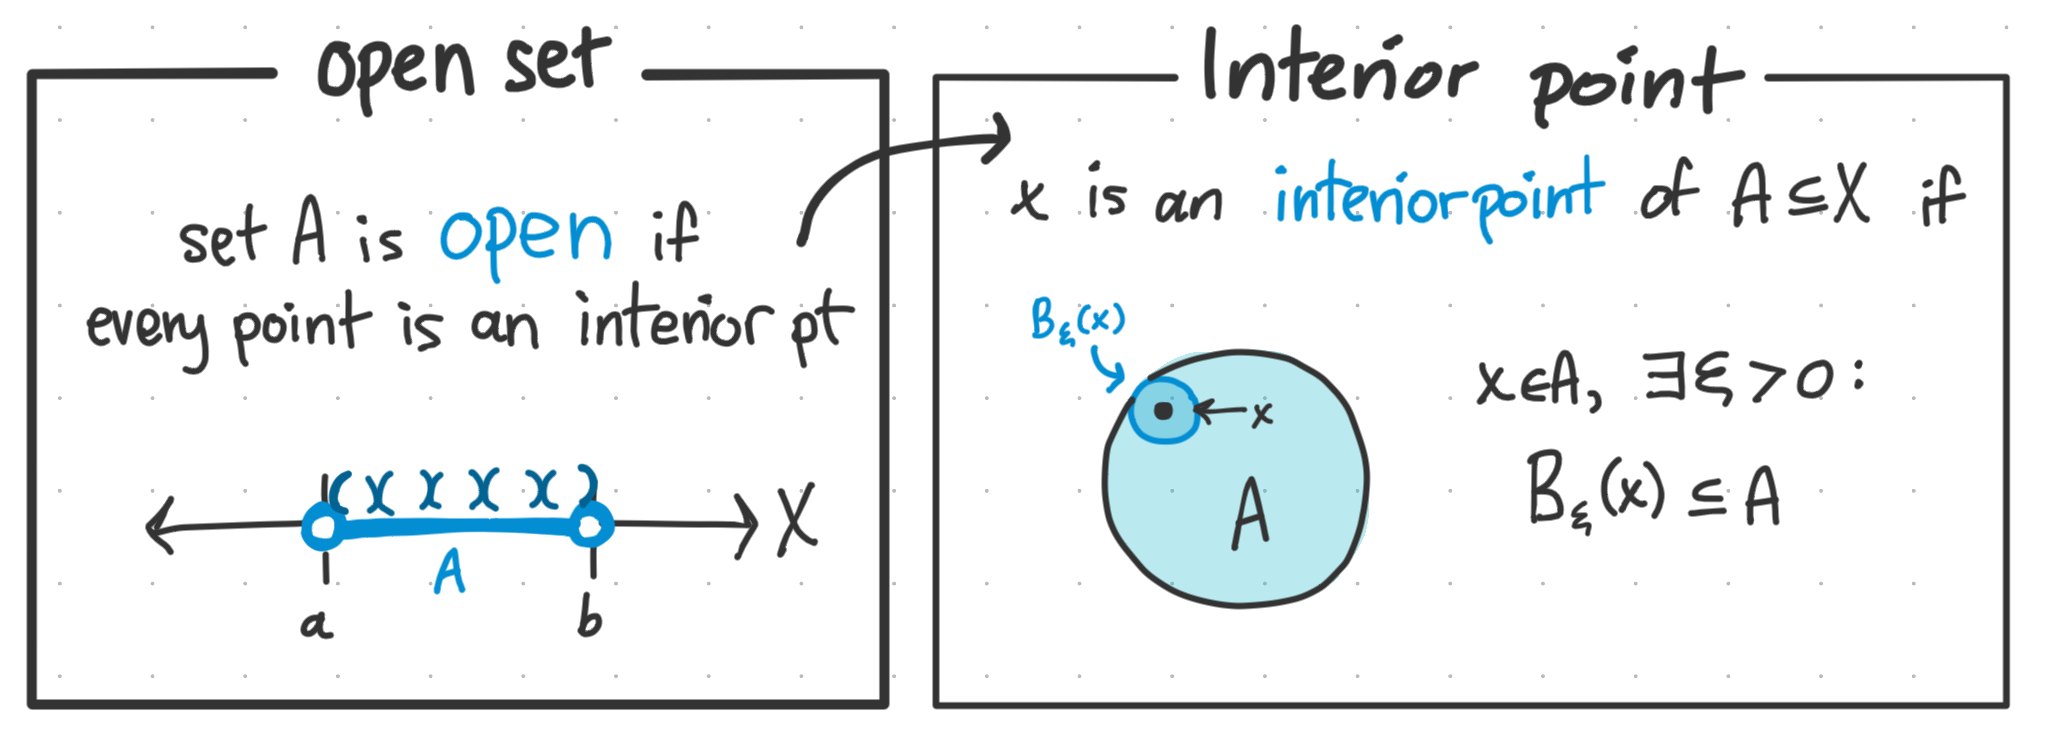 open set
set A is open if
every point is an interior pt
( x x x x )
X
A
a
b
Interior point
x is an interior point of A ⊆ X if
Bξ(x)
x
A
x ∈ A, ∃ξ > 0 :
Bξ(x) ⊆ A